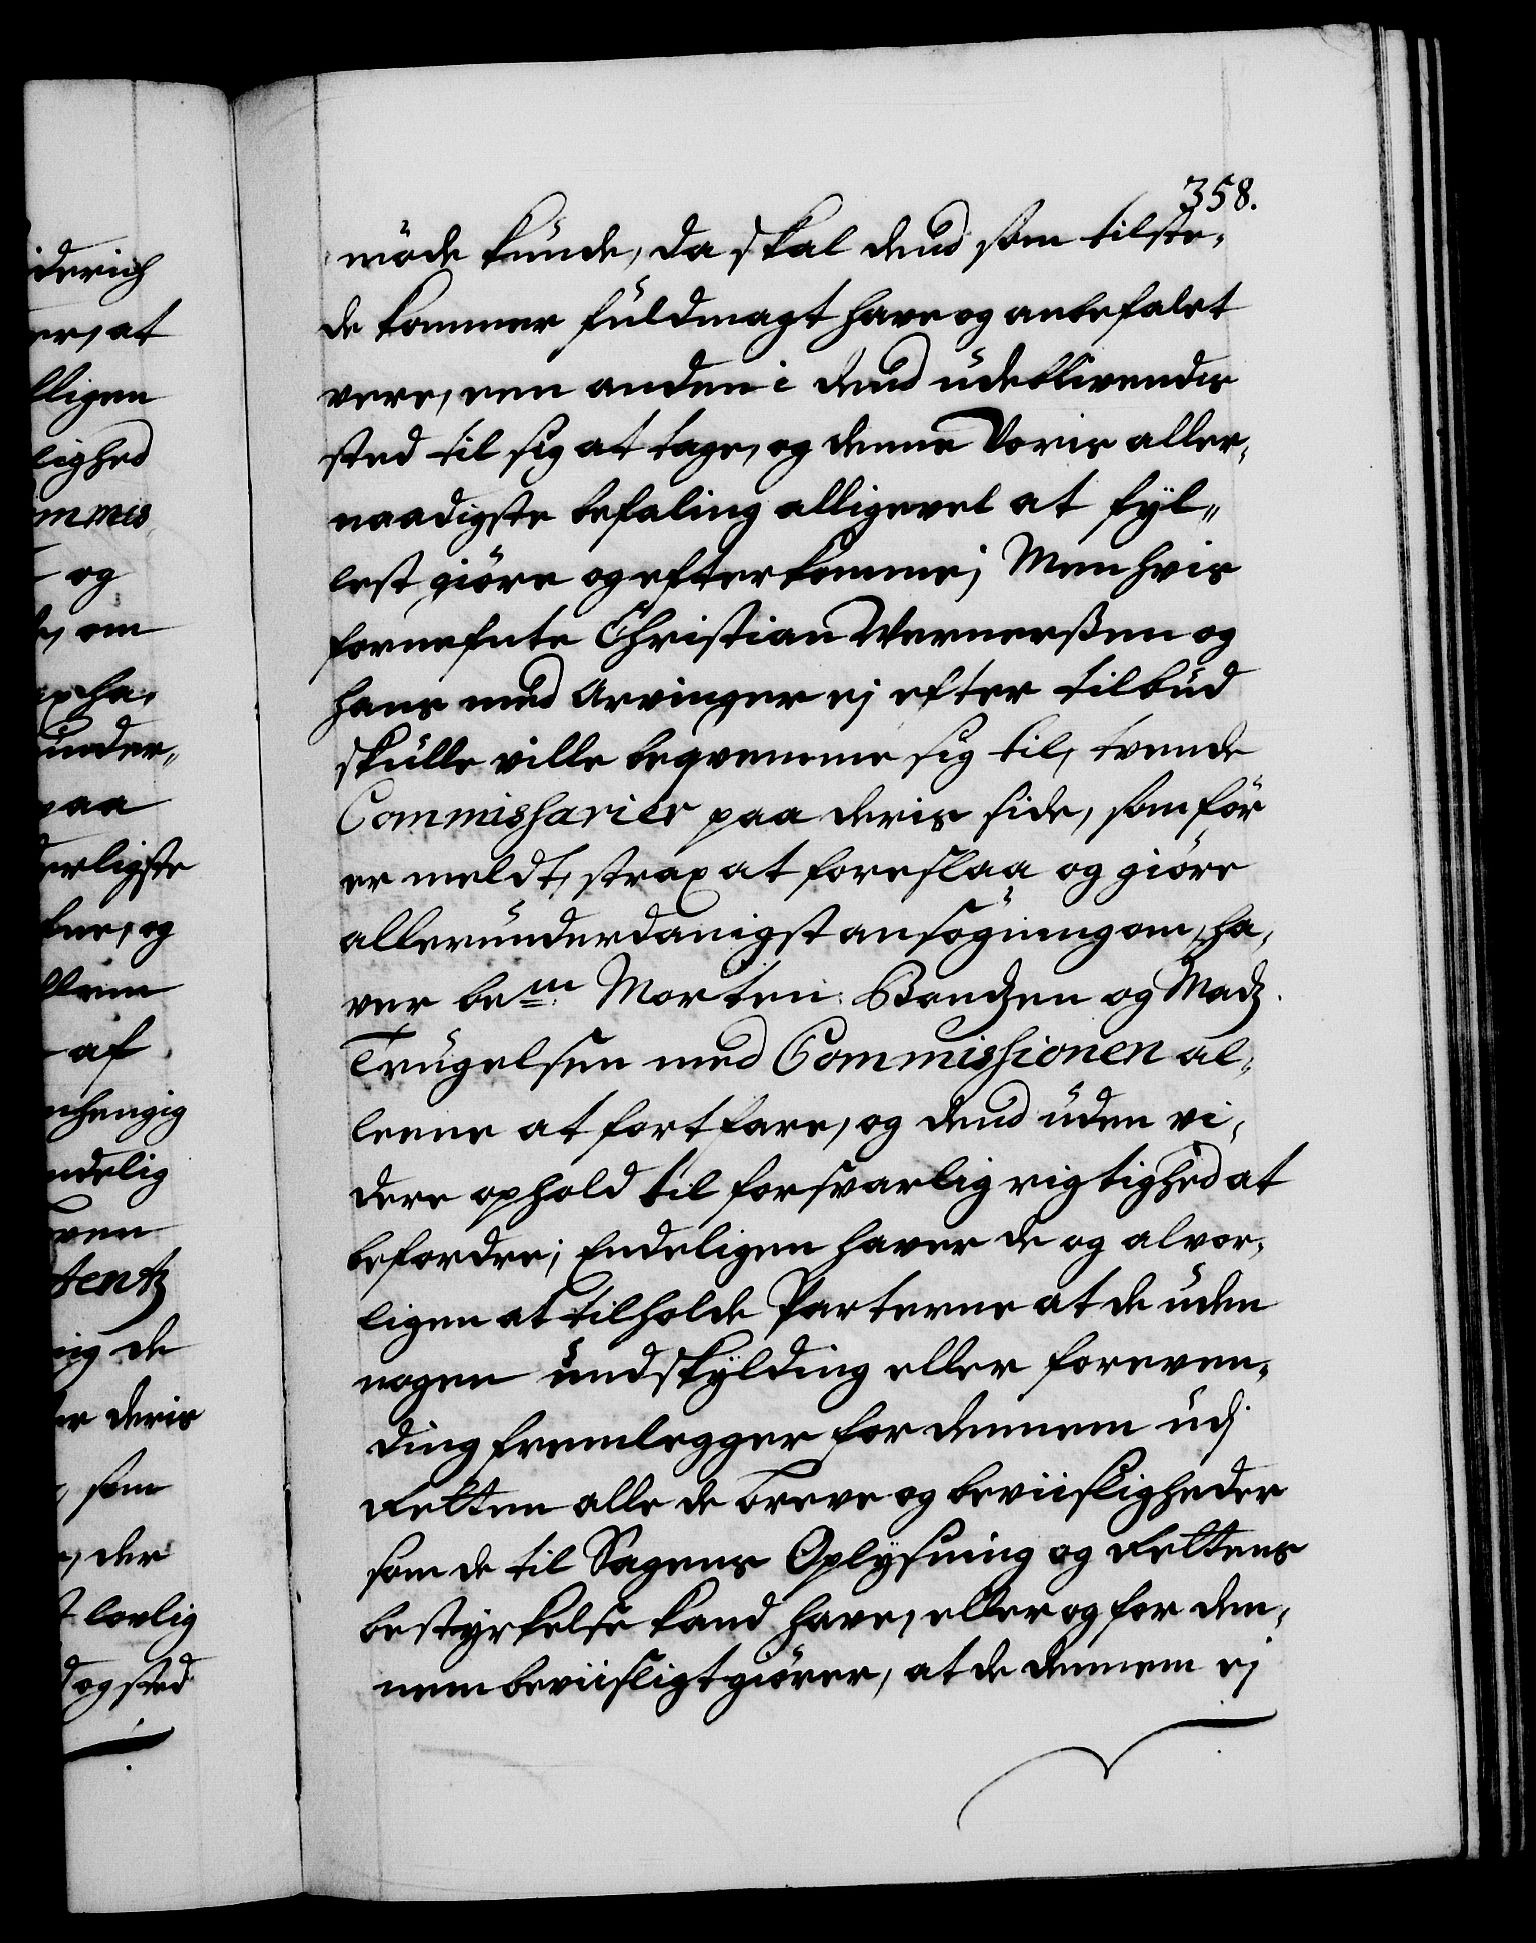 358.
møde kunde, da skal dend som tilste,
de kommer fuldmagt have og anbefalet
vere, een anden i dend udeblivendes
sted til sig at tage, og denne Voris aller,
naadigste befaling alligevel at fyl„
lest giøre og efterkomme; Men hvis
fornefnte Christian Wernerßen og
hans med Arvinger ej efter tilbud
skulle ville beqvemme sig til, tvende
Commissarier paa deris side, som før
er meldt, strax at foreslaa og giøre
allerunderdanigst ansøgning om, ha,
ver bem.te Morten Bendzen og Madz
Trugelsen med Commissionen al,
leene at fortfare, og dend uden vi,
dere ophold til forsvarlig rigtighed at
befordre; Endeligen haver de og alvor,
ligen at tilholde Parterne at de uden
nogen undskylding eller foreven,
ding fremlegger for dennem udj
Retten alle de breve og beviisligheder
som de til Sagens Oplysning og Rettens
bestyrkelse kand have, eller og for den,
nem beviisligt giører, at de dennem ej
iderich
er, at
lligen
lighed
ommis,
og
om
ha,
under„
paa
derligste
og
af
nhengig
ndelig
ven
tentz
de
er deris
som
, der
lovlig
og sted